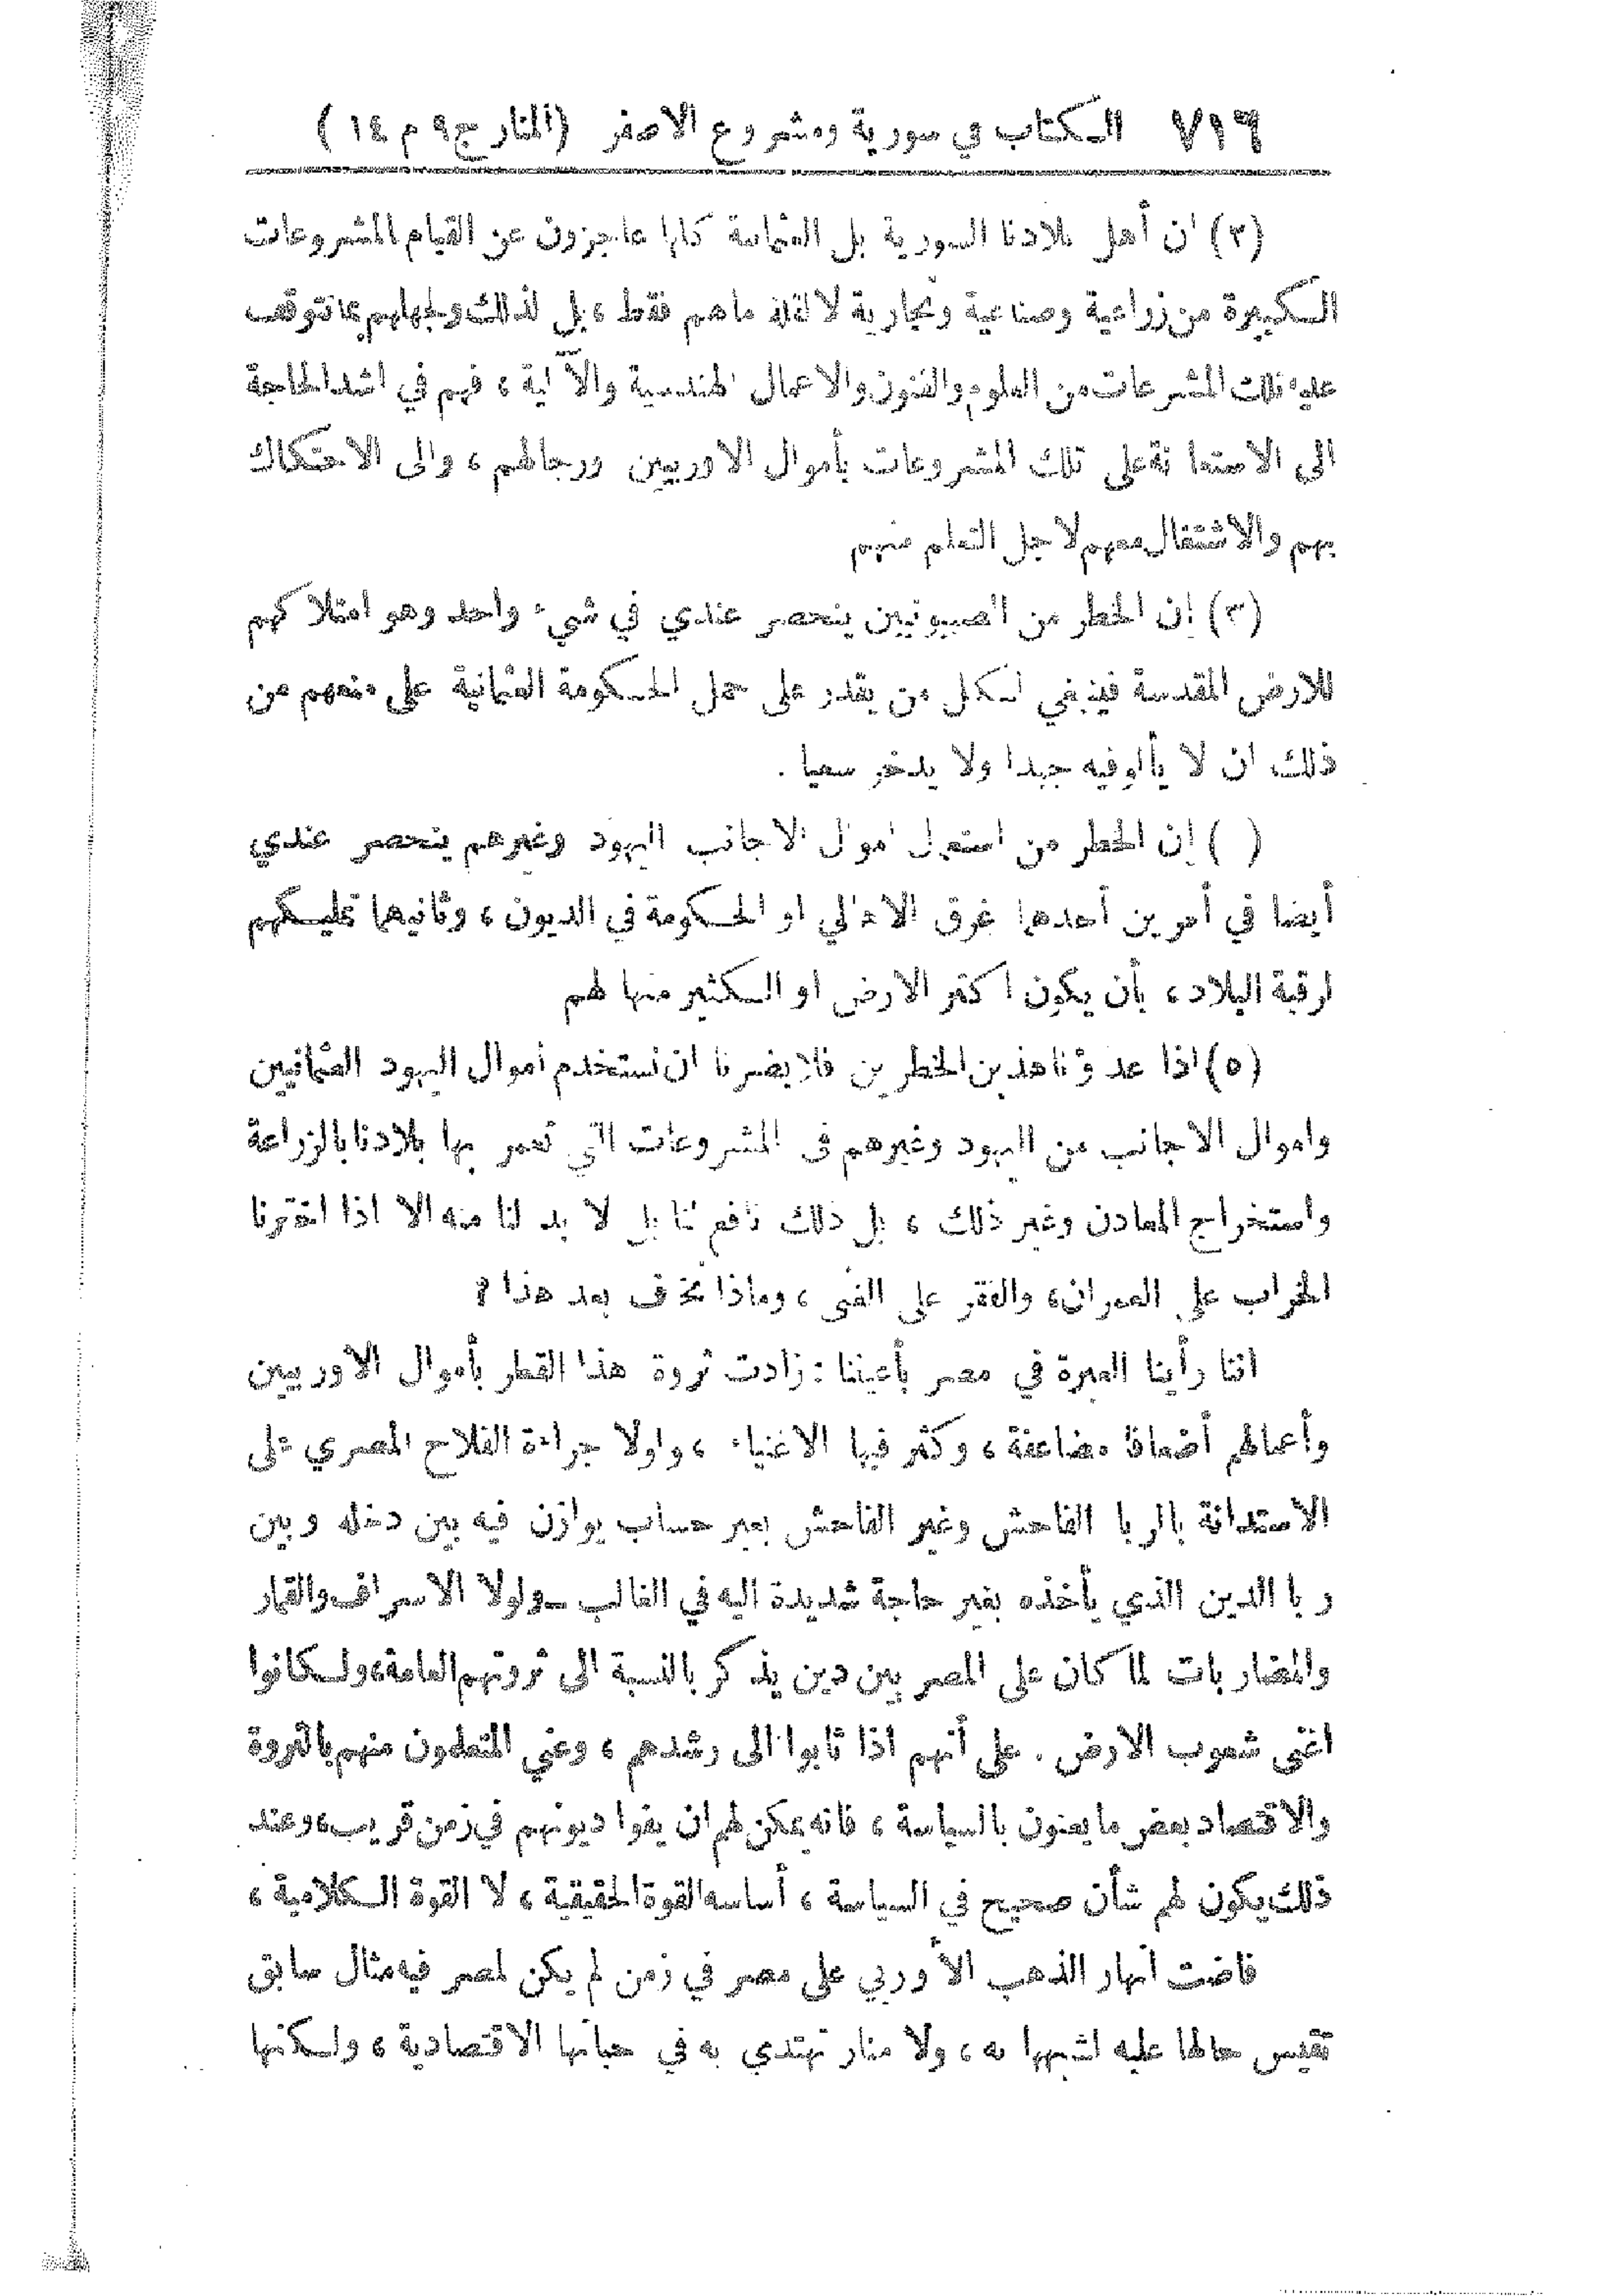 ٧١٦ الكتاب في سورية ومشروع الاصفر (المنار ج٩ م ١٤)
(٢) ان أهل بلادنا السورية بل العثمانية كلها عاجزون عن القيام بالمشروعات
الكبيرة من زراعية وصناعية وتجارية لا لقلة مالهم فقط ، بل لذلك ولجهلهم بما تتوقف
عليه تلك المشرعات من العلوم والفنون والاعمال الهندسية والآلية ، فهم في اشد الحاجة
الى الاستعانة على تلك المشروعات بأموال الاوربيين ورجالهم ، والى الاحتكاك
بهم والاشتغال معهم لاجل التعلم منهم
(٣) إن الخطر من الصهيونيين ينحصر عندي في شيء واحد وهو امتلاكهم
للارض المقدسة فينبغي لكل من يقدر على حمل الحكومة العثمانية على منعهم من
ذلك ان لا يألو فيه جهدا ولا يدخر سعيا .
( ) إن الخطر من استعمال اموال الاجانب اليهود وغيرهم ينحصر عندي
أيضا في أمرين أحدهما غرق الاهالي او الحكومة في الديون ، وثانيهما تمليكهم
لرقبة البلاد ، بأن يكون اكثر الارض او الكثير منها لهم
(٥) اذا عدونا هذين الخطرين فلا يضرنا ان نستخدم أموال اليهود العثمانيين
واموال الاجانب من اليهود وغيرهم في المشروعات التي تعمر بها بلادنا بالزراعة
واستخراج المعادن وغير ذلك ، بل ذلك نافع لنا بل لا بد لنا منه الا اذا اخترنا
الخراب على العمران ، والفقر على الغنى ، وماذا نخاف بعد هذا ؟
اننا رأينا العبرة في مصر بأعيننا : زادت ثروة هذا القطر بأموال الاوربيين
وأعمالهم أضعافا مضاعفة ، وكثر فيها الاغنياء ، ولولا جراءة الفلاح المصري على
الاستدانة بالربا الفاحش وغير الفاحش بغير حساب يوازن فيه بين دخله وبين
ربا الدين الذي يأخذه بغير حاجة شديدة اليه في الغالب ــ ولولا الاسراف والقمار
والمضاربات لما كان على المصريين دين يذكر بالنسبة الى ثروتهم العامة، ولكانوا
اغنى شعوب الارض . على أنهم اذا ثابوا الى رشدهم ، وعني المتعلمون منهم بالثروة
والاقتصاد بعض ما يعنون بالسياسة ، فانه يمكن لهم ان يفوا ديونهم في زمن قريب، وعند
ذلك يكون لهم شأن صحيح في السياسة ، أساسه القوة الحقيقية ، لا القوة الكلامية ،
فاضت انهار الذهب الأوربي على مصر في زمن لم يكن لمصر فيه مثال سابق
تقيس حالها عليه لشبهها به ، ولا منار تهتدي به في حياتها الاقتصادية ، ولكنها